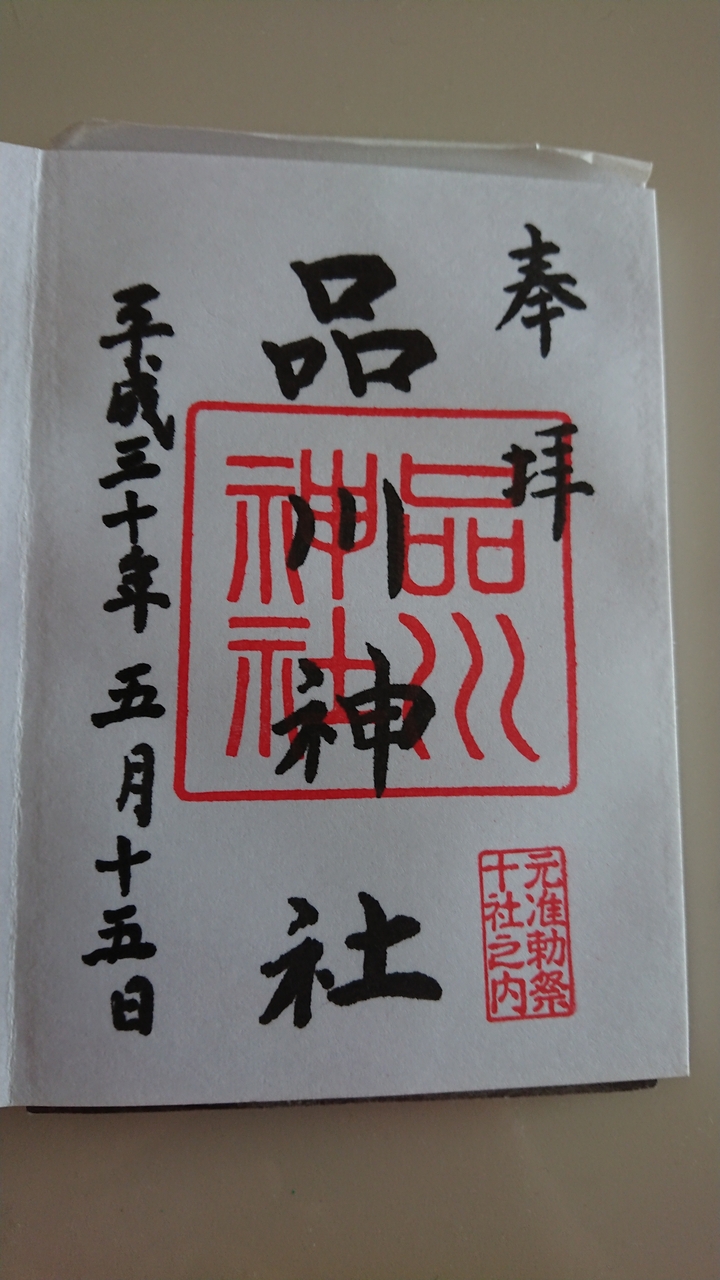 奉拝
元准勅祭
十社之内
品川神社
品川
神社
平成三十年五月十五日